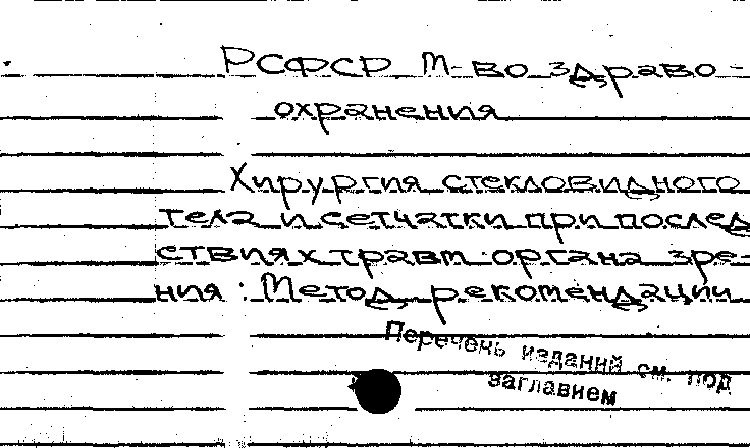 РСФСР М-во здраво-
охранения
Хирургия стекловидного
тела и сетчатки при послед
ствиях травм органа зре-
ния : Метод рекомендации
Перечень изданий см. под
заглавием